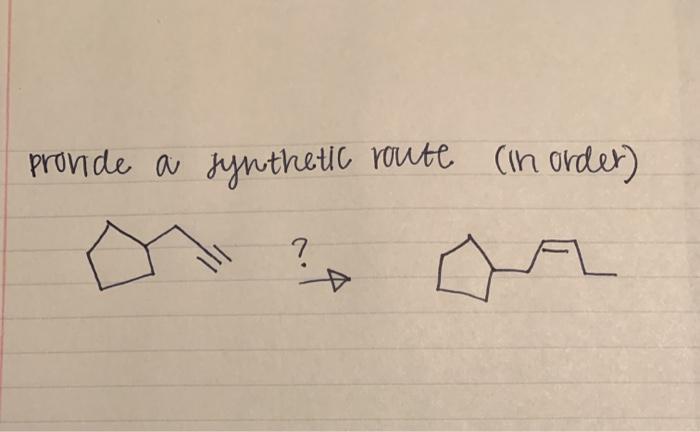 provide a synthetic route (in order)
?